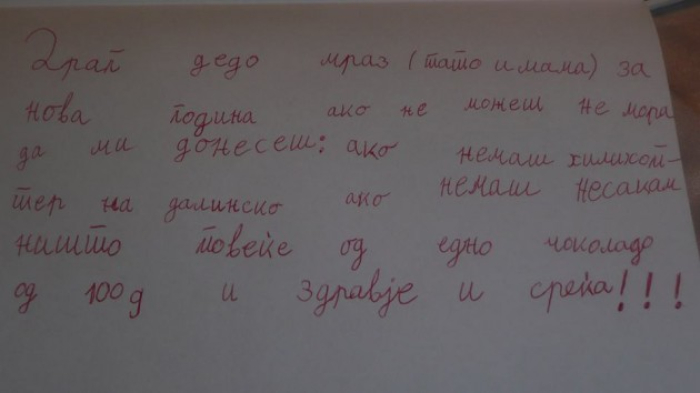 Драг дедо мраз (тато и мама) за
нова година ако не можеш не мора
да ми донесеш: ако немаш хилихоп-
тер на далинско ако немаш несакам
ништо повеќе од едно чоколадо
од 100 д и здравје и среќа!!!